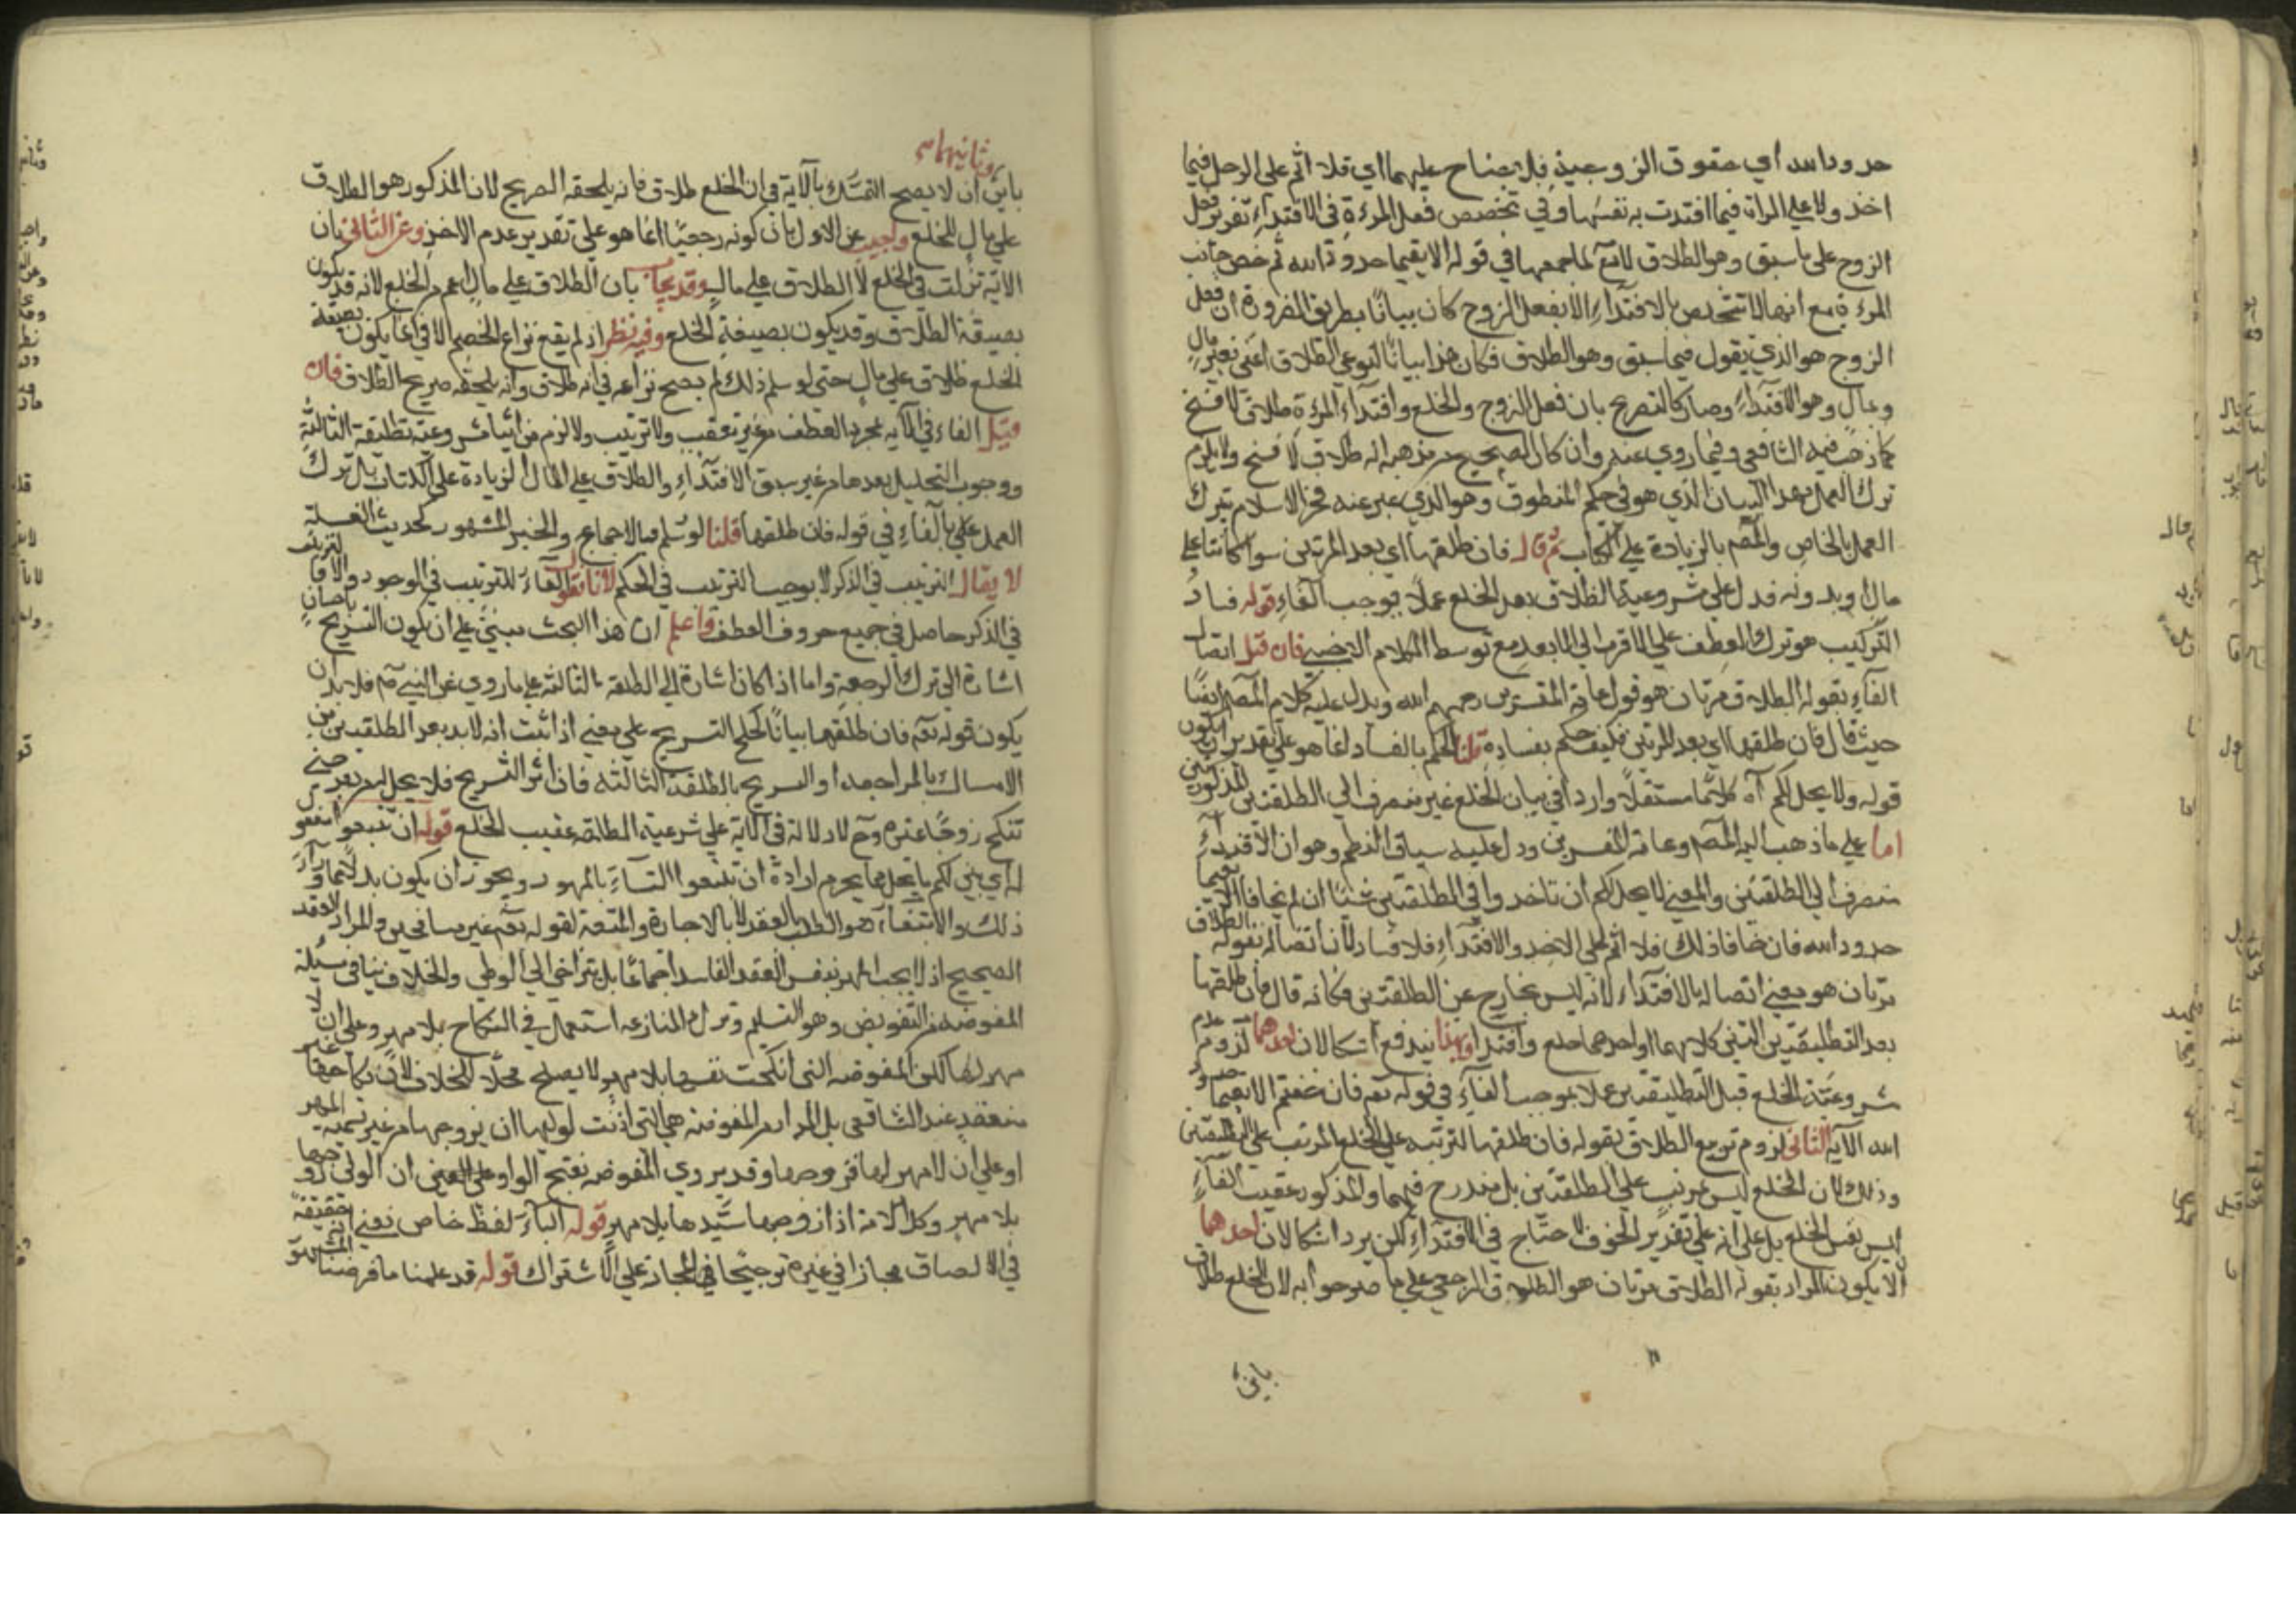 حدود الله اي حقوق الزوجية فلا جناح عليهما اي فلا اثم على الرجل فيما
اخذ ولا على المراة فيما افتدت به نفسها وفي تخصيص فعل المرءة في الافتداء تقرير فعل
الزوج على ما سبق وهو الطلاق لانه تع لما جمعهما في قوله الا يقيما حدود الله ثم خص جانب
المرءة مع انها لا تتخلص بالافتداء الا بفعل الزوج كان بيانا بطريق الضرورة ان فعل
الزوج هو الذي يقول فيما سبق وهو الطلاق فكان هذا بيانا لنوعي الطلاق اعني بغير مال
وبمال وهو الافتداء وصار كالتصريح بان فعل الزوج والخلع وافتداء المرءة طلاق لا فسخ
كما ذهب اليه الشافعي وفيما روي عنه وان كان الصحيح من مذهبه انه طلاق لا فسخ ولا يلزم
ترك العمل بهذا البيان الذي هو في حكم المنطوق وهو الذي عبر عنه فخر الاسلام بترك
العمل بالخاص والمص بالزيادة على الكتاب ثم قال فان طلقها اي بعد المرتين سوا كانتا على
مال او بدونه فدل على شروعية الطلاق بعد الخلع عملا بموجب الفاء قوله فساد
التركيب هو ترك العطف على الاقرب الى الابعد مع توسط الكلام الاجنبي فان قيل اتصال
الفاء بقوله الطلاق مرتان هو قول عامة المفسرين رحمهم الله ويدل عليه كلام المص ايضا
حيث قال فان طلقها اي بعد المرتين فكيف حكم بفساده قلنا الحكم بالفساد انما هو على تقدير ان يكون
قوله ولا يحل لكم آه كلاما مستقلا واردا في بيان الخلع غير منصرف الى الطلقتين المذكورتين
اما على ما ذهب اليه المص وعامة المفسرين ودل عليه سياق النظم وهو ان الافتداء
منصرف الى الطلقتين والمعنى لا يحل لكم ان تاخذوا في الطلقتين شيئا ان لم يخافا الا يقيما
حدود الله فان خافا ذلك فلا اثم على الاخذ والافتداء فلا فساد لان اتصاله بقوله الطلاق
مرتان هو معنى اتصاله بالافتداء لانه ليس بخارج عن الطلقتين فكانه قال فان طلقها
بعد التطليقتين اللتين كلاهما او احدهما خلع وافتداء وبهذا يندفع اشكالان احدهما لزوم عدم
شروعية الخلع قبل التطليقتين عملا بموجب الفاء في قوله تع فان خفتم الا يقيما حدود
الله الآية الثاني لزوم تربيع الطلاق بقوله فان طلقها لترتبه على الخلع المرتب على الطلقتين
وذلك لان الخلع ليس بمرتب على الطلقتين بل مندرج فيهما والمذكور عقيب الفاء
ليس نفس الخلع بل على انه على تقدير الخوف لا جناح في الافتداء لكن يرد اشكالان احدهما
الا يكون المراد بقوله الطلاق مرتان هو الطلاق الرجعي على ما صرحوا به لان الخلع طلاق
باين
وثانيهما
باين ان لا يصح التمسك بالآية في ان الخلع طلاق فانه يلحقه الصريح لان المذكور هو الطلاق
على مال للخلع واجيب عن الاول بان كونه رجعيا انما هو على تقدير عدم الاخذ وعن الثاني بان
الآية نزلت في الخلع لا الطلاق على مال وقد يجاب بان الطلاق على مال اعم من الخلع لانه قد يكون
بصيغة الطلاق وقد يكون بصيغة الخلع وفيه نظر اذ لم يقع نزاع الخصم الا في انما يكون بصيغة
الخلع طلاق على مال حتى لو سلم ذلك لم يصح نزاعه في انه طلاق وانه يلحقه صريح الطلاق فان
قيل الفاء في الآية لمجرد العطف من غير تعقيب ولا ترتيب والا لزم من اثبات شروعية تطليقة الثالثة
ووجوب التحليل بعدها من غير سبق الافتداء والطلاق على المال الزيادة على الكتاب بل ترك
العمل بالفاء في قوله فان طلقها قلنا لو سلم فبالاجماع والخبر المشهور كحديث العسيلة
لا يقال الترتيب في الذكر لا يوجب الترتيب في الحكم لانا نقول الفاء للترتيب في الوجود والا فالترتيب
في الذكر حاصل في جميع حروف العطف واعلم ان هذا البحث مبني على ان يكون التسريح باحسان
اشارة الى ترك الرجعة واما اذا كان اشارة الى الطلقة الثالثة على ما روي عن النبي صم فلا بد ان
يكون قوله تع فان طلقها بيانا لحكم التسريح على معنى اذا ثبت انه لا بد بعد الطلقتين من
الامساك بالمراجعة او التسريح بالطلقة الثالثة فان اثر التسريح فلا يحل له من بعد حتى
تنكح زوجا غيره وح لا دلالة في الآية على شرعية الطلقة عقيب الخلع قوله ان تبتغوا مفعول
له اي بين لكم ما يحل مما يحرم ارادة ان تبتغوا النساء بالمهور ويجوز ان يكون بدلا مما وراء
ذلك والابتغاء هو الطلب بالعقد لا بالاجارة والمتعة لقوله تع غير مسافحين والمراد العقد
الصحيح اذ لا يجب المهر بنفس العقد الفاسد اجماعا بل يتراخى الى الوطي والخلاف ينافي مسئلة
المفوضة من التفويض وهو التسليم وترك المنازعة استعمل في النكاح بلا مهر وعلى ان لا
مهر لها لكن المفوضة التي انكحت نفسها بلا مهر لا يصلح محلا للخلاف لان نكاحها غير
منعقد عند الشافعي بل المراد من المفوضة هي التي اذنت لوليها ان يزوجها من غير تسمية المهر
او على ان لا مهر لها فزوجها وقد يروي المفوضة بفتح الواو على المعنى ان الولي زوجها
بلا مهر وكذا الامة اذا زوجها سيدها بلا مهر قوله الباء لفظ خاص يعني انه حقيقة
في الالصاق مجازا في غيره ترجيحا في المجاز على الاشتراك قوله قد علمنا ما فرضنا المشهور